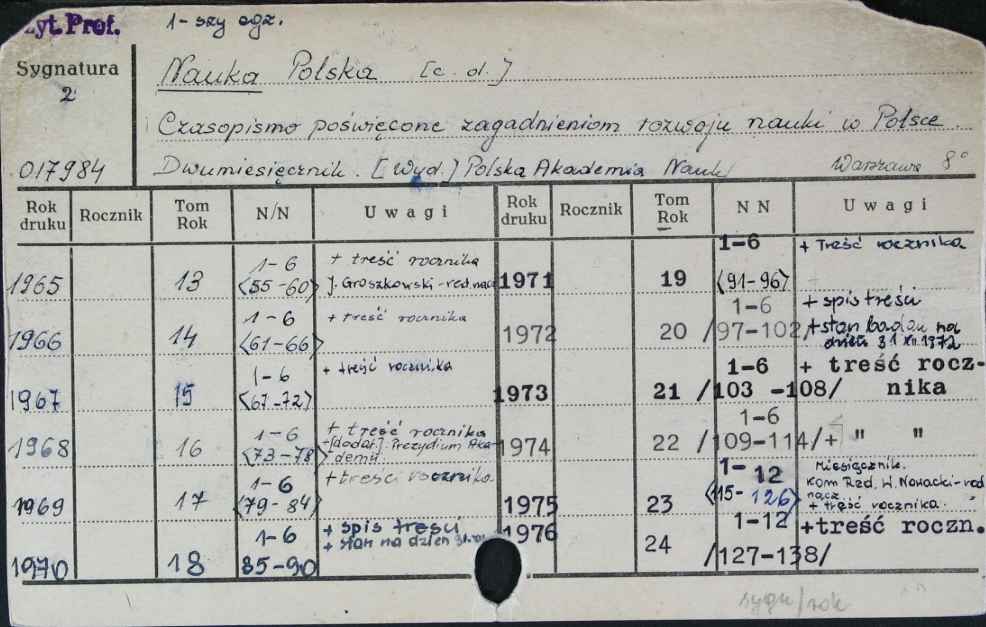 zyt. Prof.
1-szy egz.
Sygnatura
2
Nauka Polska [c.d.]
Czasopismo poświęcone zagadnieniom rozwoju nauki w Polsce.
017984
Dwumiesięcznik. [Wyd.] Polska Akademia Nauk
Warszawa 8°
Rok druku Rocznik Tom Rok N/N Uwagi Rok druku Rocznik Tom Rok NN Uwagi
1965 13 1-6 <55-60> + treść rocznika J. Groszkowski-red. nacz
1971 19 1-6 <91-96> + Treść rocznika
1966 14 1-6 <61-66> + treść rocznika
1972 20 1-6 /97-102/ + spis treści + stan badań na dzień 31 XII.1972
1967 15 1-6 <67-72> + treść rocznika
1973 21 1-6 /103-108/ + treść rocz-nika
1968 16 1-6 <73-78> + treść rocznika +[dodat.] Prezydium Aka-demii
1974 22 1-6 /109-114/ + " "
1969 17 1-6 <79-84> + treści rocznika
1975 23 1-12 <115-126> Miesięcznik. Kom Red. W. Nowacki-red nacz. + treść rocznika.
1970 18 1-6 85-90 + spis treści + stan na dzień
1976 24 1-12 /127-138/ +treść roczn.
sygn/rok